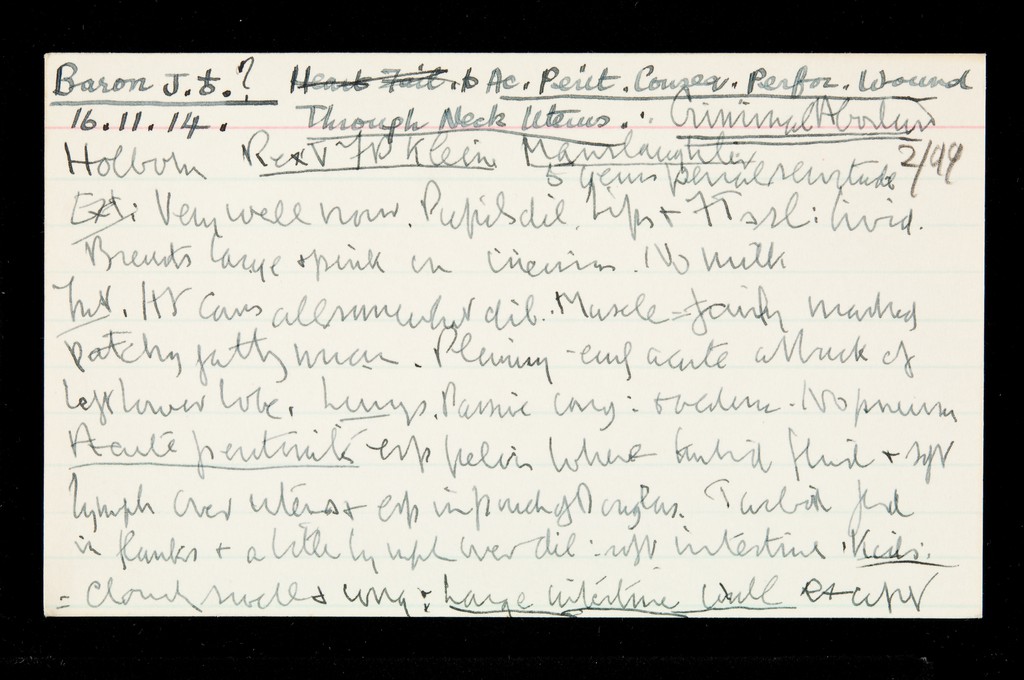 Baron J. t.? Heart Fail. to Ac. Perit. Conseq. Perfor. Wound
16.11.14. Through Neck Uterus. ∴ Criminal Abortion
Holborn Rex v Klein Manslaughter 2/99
5 years penal servitude
Ext: Very well nour. Pupils dil. Lips + livid.
Breasts large + pink in No milk
Int. Ht Cavs all somewhat dil. Muscle = fairly marked
patchy fatty Pleurisy - early acute attack of
left lower lobe. Lungs. Passive cong: + oedema. No pneum
Acute peritonitis esp pelvis where turbid fluid + soft
lymph over uterus + esp in pouch of Douglas. Turbid fluid
in flanks + a little lymph over dil: soft intestine. Kids:
= cloudy swell + cong: Large intestine well